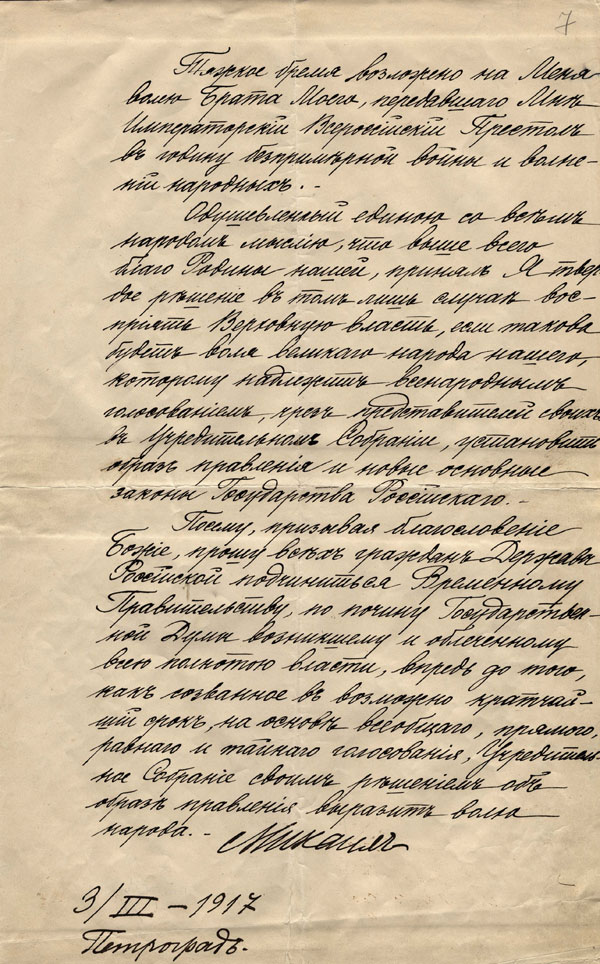 7
Тяжкое бремя возложено на Меня
волею Брата Моего, передавшего Мнѣ
Императорскій Всероссійскій Престолъ
въ годину безпримѣрной войны и волне-
ній народныхъ. -
Одушевленный единою со всѣмъ
народомъ мыслію, что выше всего
благо Родины нашей, принялъ Я твер
дое рѣшеніе въ томъ лишь случаѣ вос-
пріять Верховную власть, если такова
будетъ воля великаго народа нашего,
которому надлежитъ всенароднымъ
голосованіемъ, чрезъ представителей своихъ
въ Учредительномъ Собраніи, установить
образъ правленія и новые основные
законы Государства Россійскаго. -
Посему, призывая благословеніе
Божіе, прошу всѣхъ гражданъ Державы
Россійской подчиниться Временному
Правительству, по почину Государствен-
ной Думы возникшему и облеченному
всею полнотою власти, впредь до того,
какъ созванное въ возможно кратчай-
шій срокъ, на основѣ всеобщаго, прямого,
равнаго и тайнаго голосованія, Учредитель-
ное Собраніе своимъ рѣшеніемъ объ
образѣ правленія выразитъ волю
народа. -
Михаилъ
3/III - 1917
Петроградъ.